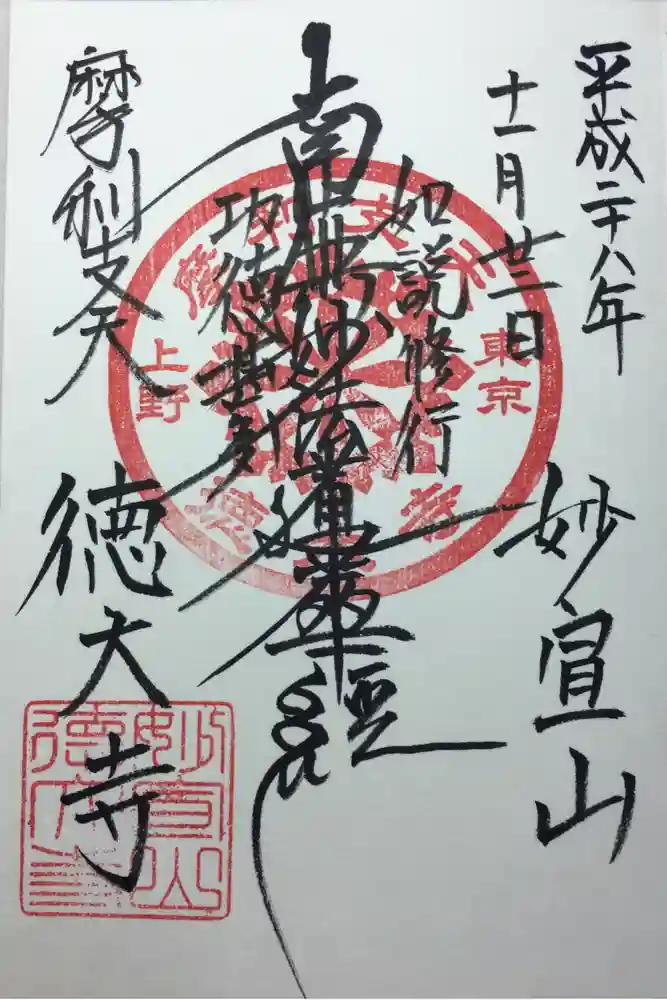 平成二十八年
十一月廿三日
妙宣山
如説修行
南無妙法蓮華経
功徳甚多
摩利支天
徳大寺
東京
上野
妙宣山
徳大寺